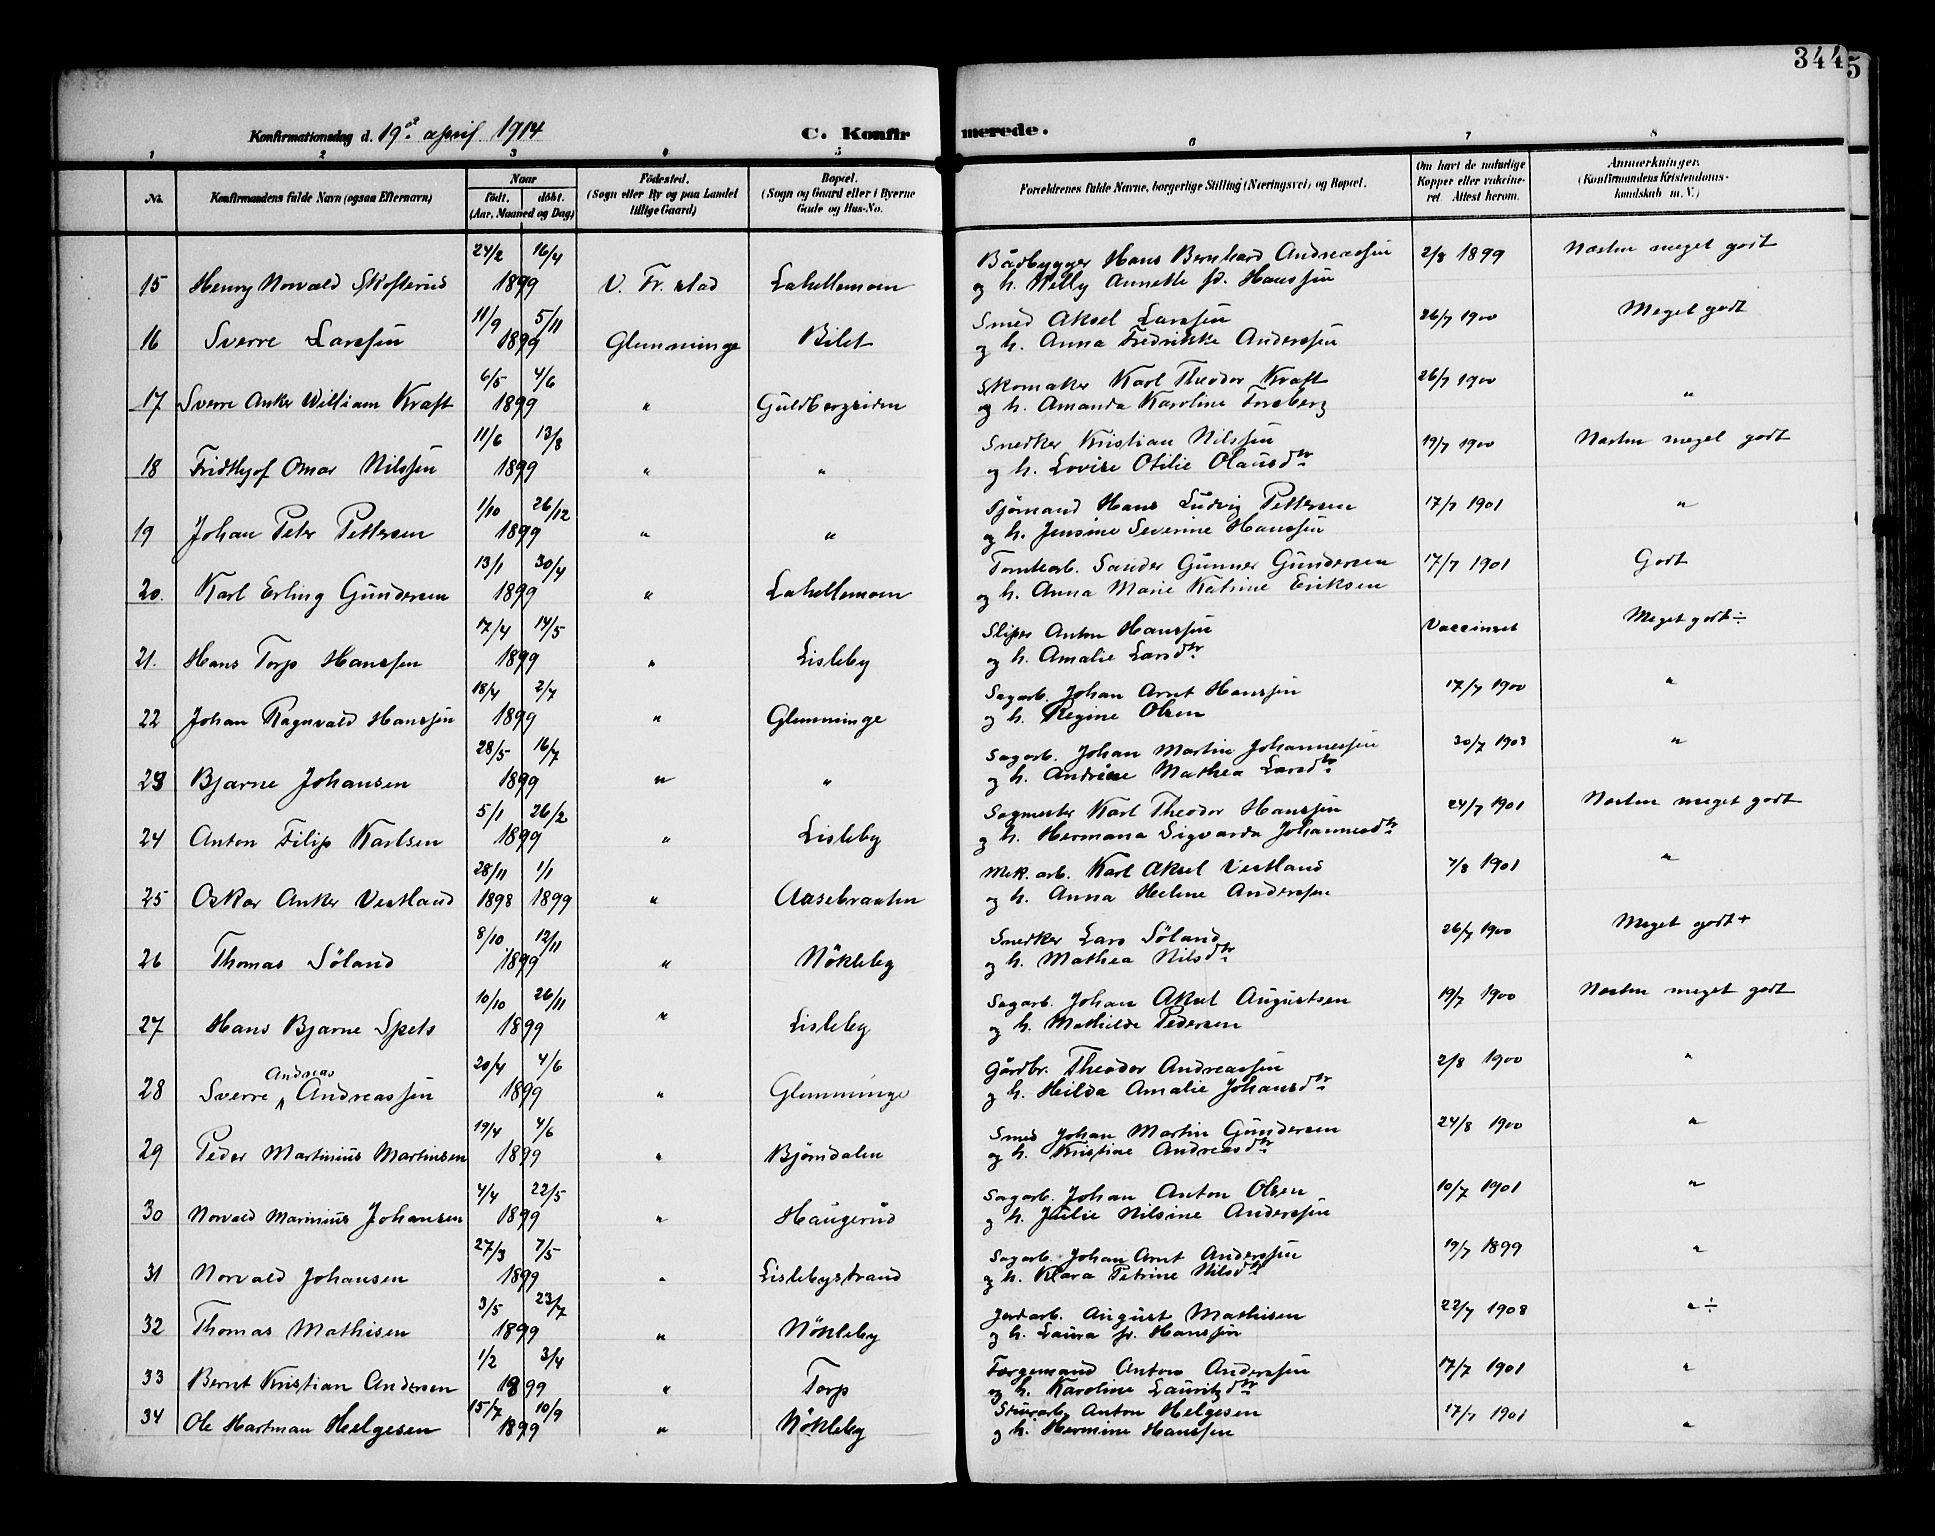 344
5
Konfirmationsdag d. 19de april 1914
C. Konfirmerede.
1 2 3 4 5 6 7 8
No. Konfirmandens fulde Navn (ogsaa Efternavn) Naar født. døbt. (Aar, Maaned og Dag) Fødested. (Sogn eller By og paa Landet tillige Gaard) Bopæl. (Sogn og Gaard eller i Byerne Gade og Hus-No. Forældrenes fulde Navne, borgerlige Stilling (Næringsvei) og Bopæl. Om havt de naturlige Kopper eller vakcineret. Attest herom. Anmerkninger. (Konfirmandens Kristendomskundskab m. V.)
24/2 16/4 Bådbygger Hans Bernhard Andreassen 2/8 1899 Næsten meget godt
15 Henry Norvald Skofterud 1899 V. Fr.stad Lahellemoen og h. Willy Annette fd. Hanssen
11/9 5/11 Smed Aksel Larssen 26/7 1900 Meget godt
16 Sverre Larssen 1899 Glemminge Bilet og h. Anna Fredrikke Anderssen
6/5 4/6 Skomaker Karl Theodor Kraft 26/7 1900 "
17 Sverre Anker William Kraft 1899 " Guldbergsiden og h. Amanda Karoline Forsberg
11/6 13/8 Snedker Kristian Nilssen 19/7 1900 Næsten meget godt
18 Fridthjof Omar Nilssen 1899 " " og h. Lovise Otilie Olausdtr
1/10 26/12 Sjømand Hans Ludvig Pettersen 17/7 1901 "
19 Johan Peter Pettersen 1899 " " og h. Jensine Severine Hanssen
13/1 30/4 Tomtearb. Sander Gunner Gundersen 17/7 1901 Godt
20. Karl Erling Gundersen 1899 " Lahellemoen og h. Anna Marie Katrine Eriksen
17/4 14/5 Sliper Anton Hanssen Vaccineret Meget godt ÷
21. Hans Torp Hanssen 1899 " Lisleby og h. Amalie Larsdtr
18/4 2/7 Sagarb. Johan Arnt Hanssen 17/7 1900 "
22 Johan Ragnvald Hanssen 1899 " Glemminge og h. Regine Olsen
28/5 16/7 Sagarb. Johan Martin Johannessen 30/7 1903 "
23 Bjarne Johansen 1899 " " og h. Andrine Mathea Larsdtr
5/1 26/2 Sagmester Karl Theodor Hanssen 24/7 1901 Næsten meget godt
24 Anton Filip Karlsen 1899 " Lisleby og h. Hermana Sigvarda Johannesdtr
28/11 1/1 Mek. arb. Karl Aksel Vestland 7/8 1901 "
25 Oskar Anker Vestland 1898 1899 " Aasebraaten og h. Anna Helene Anderssen
8/10 12/11 Snedker Lars Søland 26/7 1900 Meget godt +
26 Thomas Søland 1899 " Nøkleby og h. Mathea Nilsdtr
10/10 26/11 Sagarb. Johan Aksel Augustsen 19/7 1900 Næsten meget godt
27 Hans Bjarne Spets 1899 " Lisleby og h. Mathilde Pedersen
20/4 4/6 Gårdbr. Theodor Andreassen 2/8 1900 "
28 Sverre Andreas Andreassen 1899 " Glemminge og h. Hilda Amalie Johansdtr
19/4 4/6 Smed Johan Martin Gundersen 24/8 1900 "
29 Peder Martinius Martinsen 1899 " Bjørndalen og h. Kristine Andreasdtr
4/4 22/5 Sagarb. Johan Anton Olsen 10/7 1901 "
30 Norvald Marinius Johansen 1899 " Haugerud og h. Julie Nilsine Anderssen
27/3 7/5 Sagarb. Johan Arnt Anderssen 19/7 1899 "
31 Norvald Johansen 1899 " Lislebystrand og h. Klara Petrine Nilsdtr
3/5 23/7 Jordarb. August Mathisen 22/7 1908 " ÷
32 Thomas Mathisen 1899 " Nøkleby og h. Laura fr. Hanssen
1/2 3/4 Færgemand Anton Anderssen 17/7 1901 "
33 Bernt Kristian Andersen 1899 " Torp og h. Karoline Lauritzdtr
15/7 10/9 Stuerarb. Anton Helgesen 17/7 1901 "
34 Ole Hartman Helgesen 1899 " Nøkleby og h. Hermine Hanssen